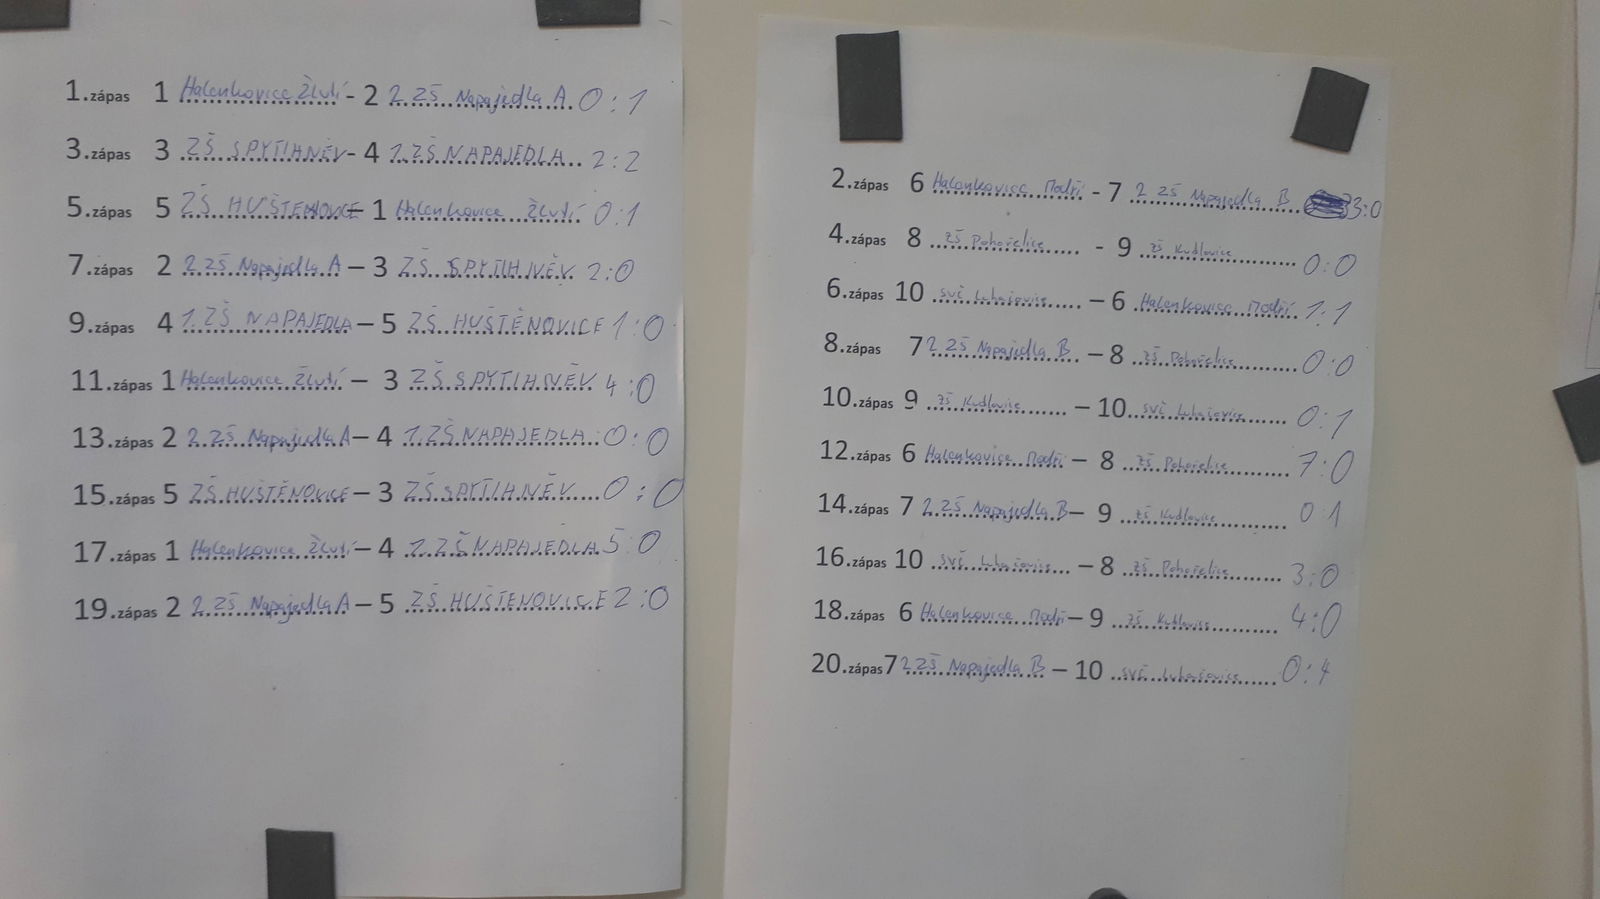 1.zápas 1 Halenkovice Žlutí - 2 2.ZŠ Napajedla A 0:1
3.zápas 3 ZŠ SPYTIHNĚV - 4 1.ZŠ NAPAJEDLA 2:2
5.zápas 5 ZŠ HUŠTĚNOVICE - 1 Halenkovice Žlutí 0:1
7.zápas 2 2.ZŠ Napajedla A - 3 ZŠ SPYTIHNĚV 2:0
9.zápas 4 1.ZŠ NAPAJEDLA - 5 ZŠ HUŠTĚNOVICE 1:0
11.zápas 1 Halenkovice Žlutí - 3 ZŠ SPYTIHNĚV 4:0
13.zápas 2 2.ZŠ Napajedla A - 4 1.ZŠ NAPAJEDLA 0:0
15.zápas 5 ZŠ HUŠTĚNOVICE - 3 ZŠ SPYTIHNĚV 0:0
17.zápas 1 Halenkovice Žlutí - 4 1.ZŠ NAPAJEDLA 5:0
19.zápas 2 2.ZŠ Napajedla A - 5 ZŠ HUŠTĚNOVICE 2:0
2.zápas 6 Halenkovice Modří - 7 2.ZŠ Napajedla B 3:0
4.zápas 8 ZŠ Pohořelice - 9 ZŠ Kudlovice 0:0
6.zápas 10 SVČ Luhačovice - 6 Halenkovice Modří 1:1
8.zápas 7 2.ZŠ Napajedla B - 8 ZŠ Pohořelice 0:0
10.zápas 9 ZŠ Kudlovice - 10 SVČ Luhačovice 0:1
12.zápas 6 Halenkovice Modří - 8 ZŠ Pohořelice 7:0
14.zápas 7 2.ZŠ Napajedla B - 9 ZŠ Kudlovice 0:1
16.zápas 10 SVČ Luhačovice - 8 ZŠ Pohořelice 3:0
18.zápas 6 Halenkovice Modří - 9 ZŠ Kudlovice 4:0
20.zápas 7 2.ZŠ Napajedla B - 10 SVČ Luhačovice 0:4